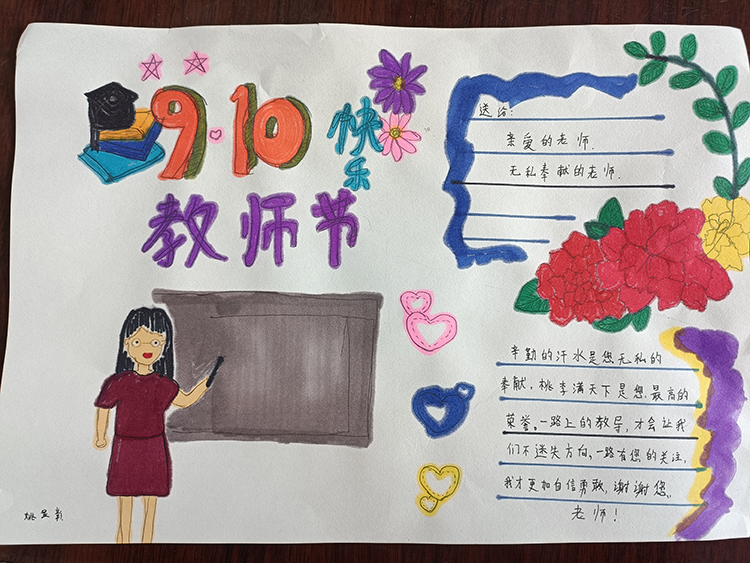 9.10
快乐
教师节
送给:
亲爱的老师.
无私奉献的老师.
辛勤的汗水是您无私的
奉献,桃李满天下是您最高的
荣誉,一路上的教导,才会让我
们不迷失方向,一路有您的关注,
我才更加自信勇敢,谢谢您,
老师!